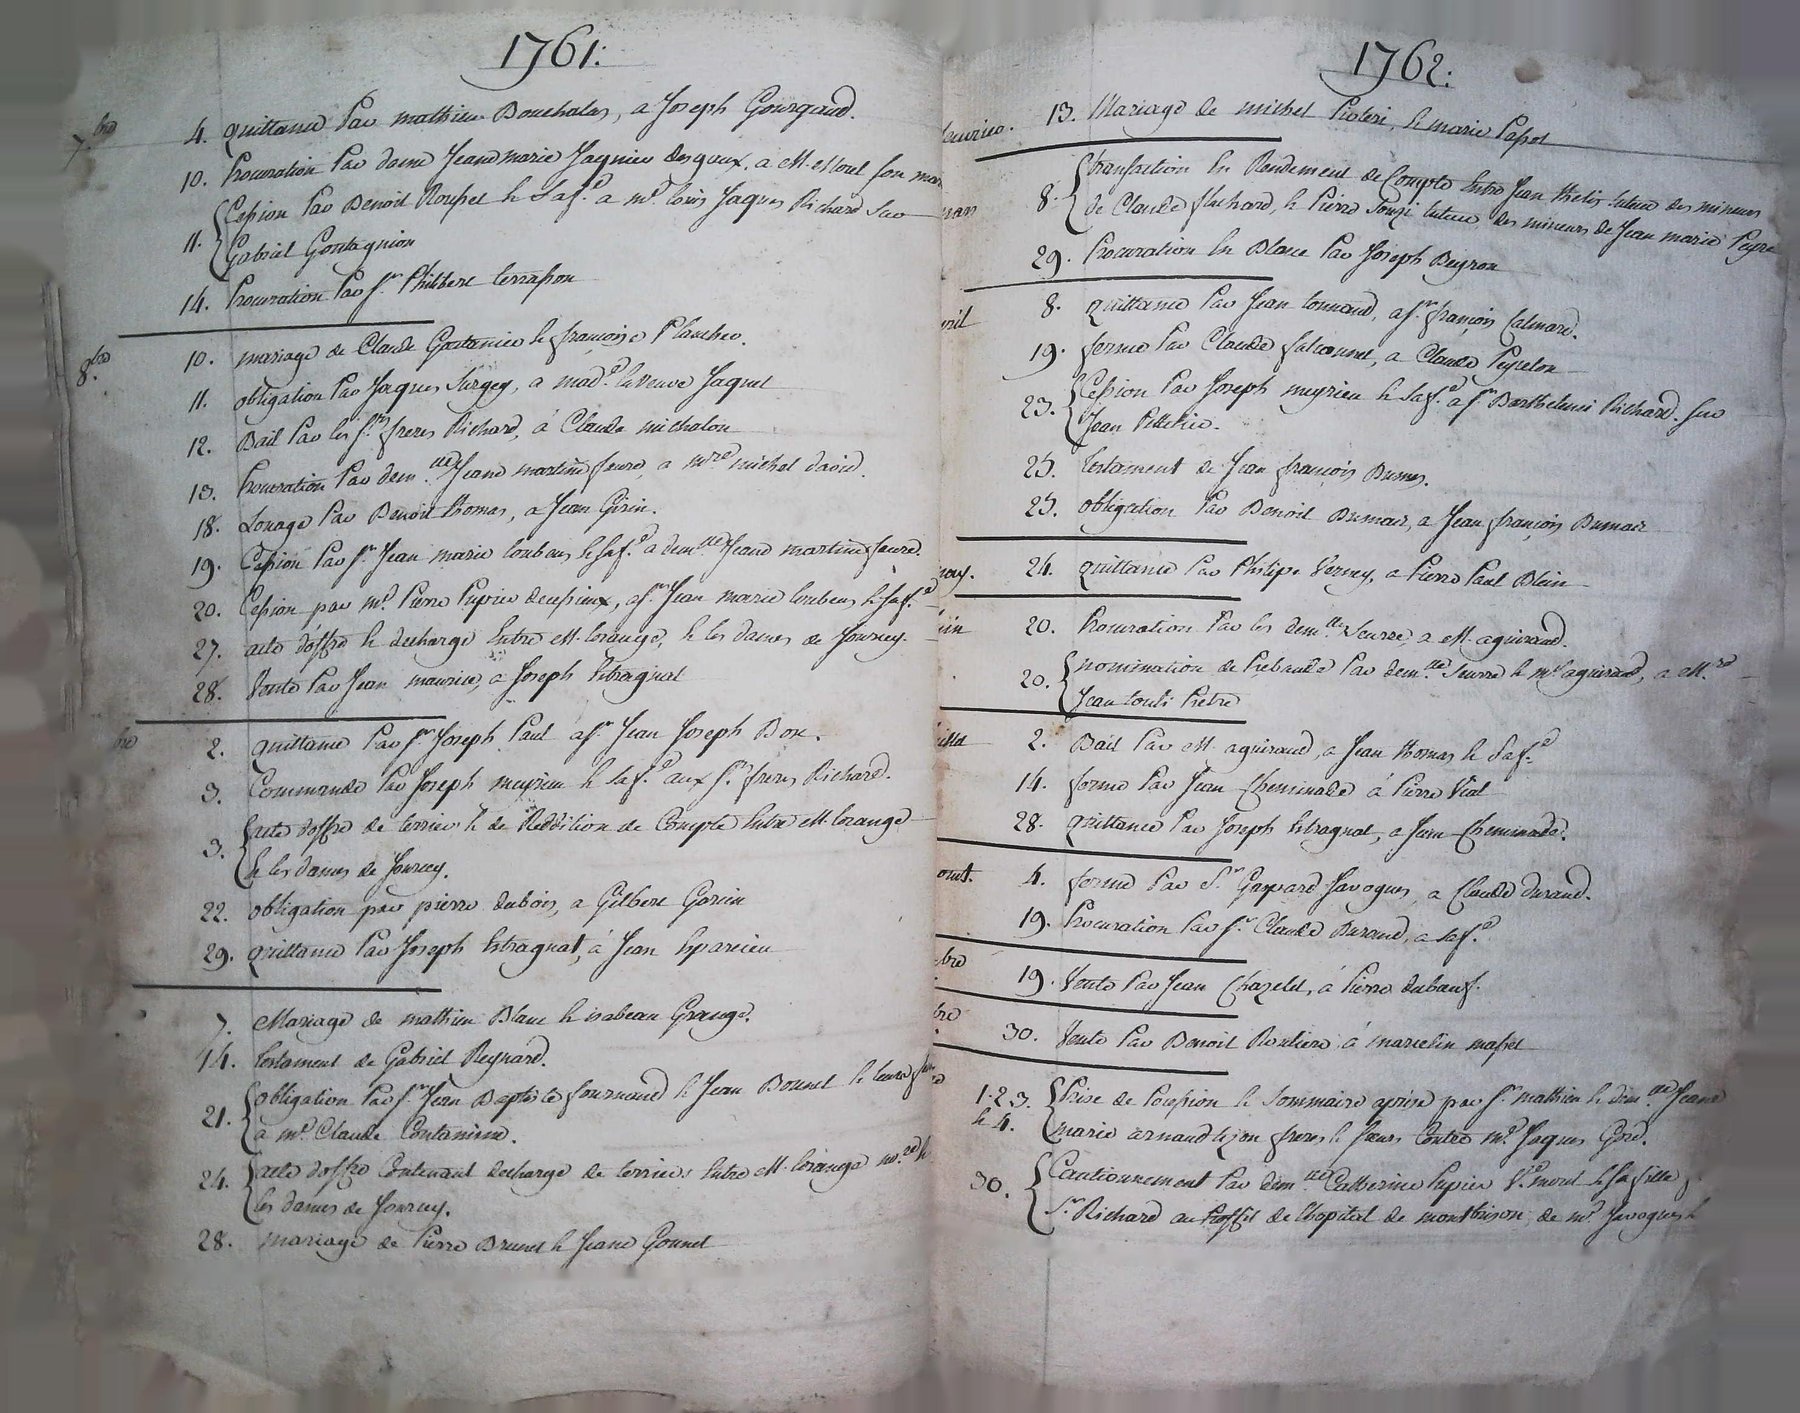 1761:
7.bre 4. quittance Par mathieu Bouchalas, a Joseph Gourgaud.
10. Procuration Par dame Jeanne marie Jaquier desgaux, a M. son mar
11. Cession Par Benoit Rousset & Sa f.e a m.e loüis Jaques Richard Sur
Gabriel Gontagnion
14. Procuration Par s.r Philibert terrasson
8.bre 10. mariage de Claude & françoise Plancher.
11. obligation Par Jaques Furgey, a mad.e la veuve Jaquet
12. Bail Par les s.rs freres Richard, á Claude michalon
13. Procuration Par dem.lle Jeane martine faure, a m.re michel david.
18. Louage Par Benoit thomas, a Jean Girin.
19. Cession Par s.r Jean marie loubeus & sa f.e a dem.lle Jeane martine faure.
20. Cession par m.e Pierre Pupier decussieux, a s.r Jean marie loubeus & sa f.e
27. acte d'offre & decharge Entre M. lorange, & les dames de Jourcey.
28. Vente Par Jean maurier, a Joseph Estragnat
bre 2. quittance Par s.r Joseph Paul a s.r Jean Joseph Box.
3. Commande Par Joseph meyrieu & sa f.e aux s.rs freres Richard.
3. acte d'offre de terriers & de Reddition de Compte Entre M. lorange
& les dames de Jourcey.
22. obligation par pierre dubois, a Gilbert Garin
29. quittance Par Joseph Estragnat, á Jean Eparcieu
7. Mariage de mathieu Blanc & isabeau Grange.
14. testament de Gabriel Reynard.
21. obligation Par s.r Jean Baptiste fournand & Jean Bonnet & leurs
a m.e Claude Contamine.
24. acte d'offre Contenant decharge de terriers Entre M. lorange no.re &
les dames de Jourcey.
28. mariage de Pierre Brunet & Jeane Gonnet
1762:
13. Mariage de michel & marie Passot
8. transaction En Rendement de Compte Entre Jean thelis tuteur des mineurs
de Claude fluchard, & Pierre tuteur des mineurs de Jean marie Peyre
29. Procuration En Blanc Par Joseph Beyron
vril 8. quittance Par Jean tonnaud, a s.r françois Calmard.
19. ferme Par Claude falconnet, a Claude Peyrelon
23. Cession Par Joseph meyrieu & sa f.e a s.r Barthelemi Richard. sur
Jean Pelletier.
25. testament de Jean françois Dumas.
25. obligation Par Benoit Dumas, a Jean françois Dumas
may. 24. quittance Par Philipe Verney, a Pierre Paul Blein
uin 20. Procuration Par les dem.lles Seurre, a M. aguiraud.
20. nomination de Prebande Par dem.lle Seurre & m.e aguiraud, a M.re
Jean Pretre
illet 2. Bail Par M. aguiraud, a Jean thomas & sa f.e
14. ferme Par Jean Cheminade á Pierre Vial
28. quittance Par Joseph Estragnat, a Jean Cheminade.
oust. 4. ferme Par S.r Gaspard Javogues, a Claude durand.
19. Procuration Par s.r Claude Durand, a sa f.e
bre 19. Vente Par Jean Chazelet, á Pierre dubœuf.
bre 30. Vente Par Benoit á marcelin masset
1.2.3. & 4. Prise de Possession & sommaire aprise par s.r mathieu & dem.lle Jeane
marie arnaud freres & sœurs Contre m.e Jaques Goré.
30. Cautionnement Par dem.lle Catherine Pupier V.e & sa fille
S.r Richard au Proffit de l'hopital de montbrison, de m.e Javogues &